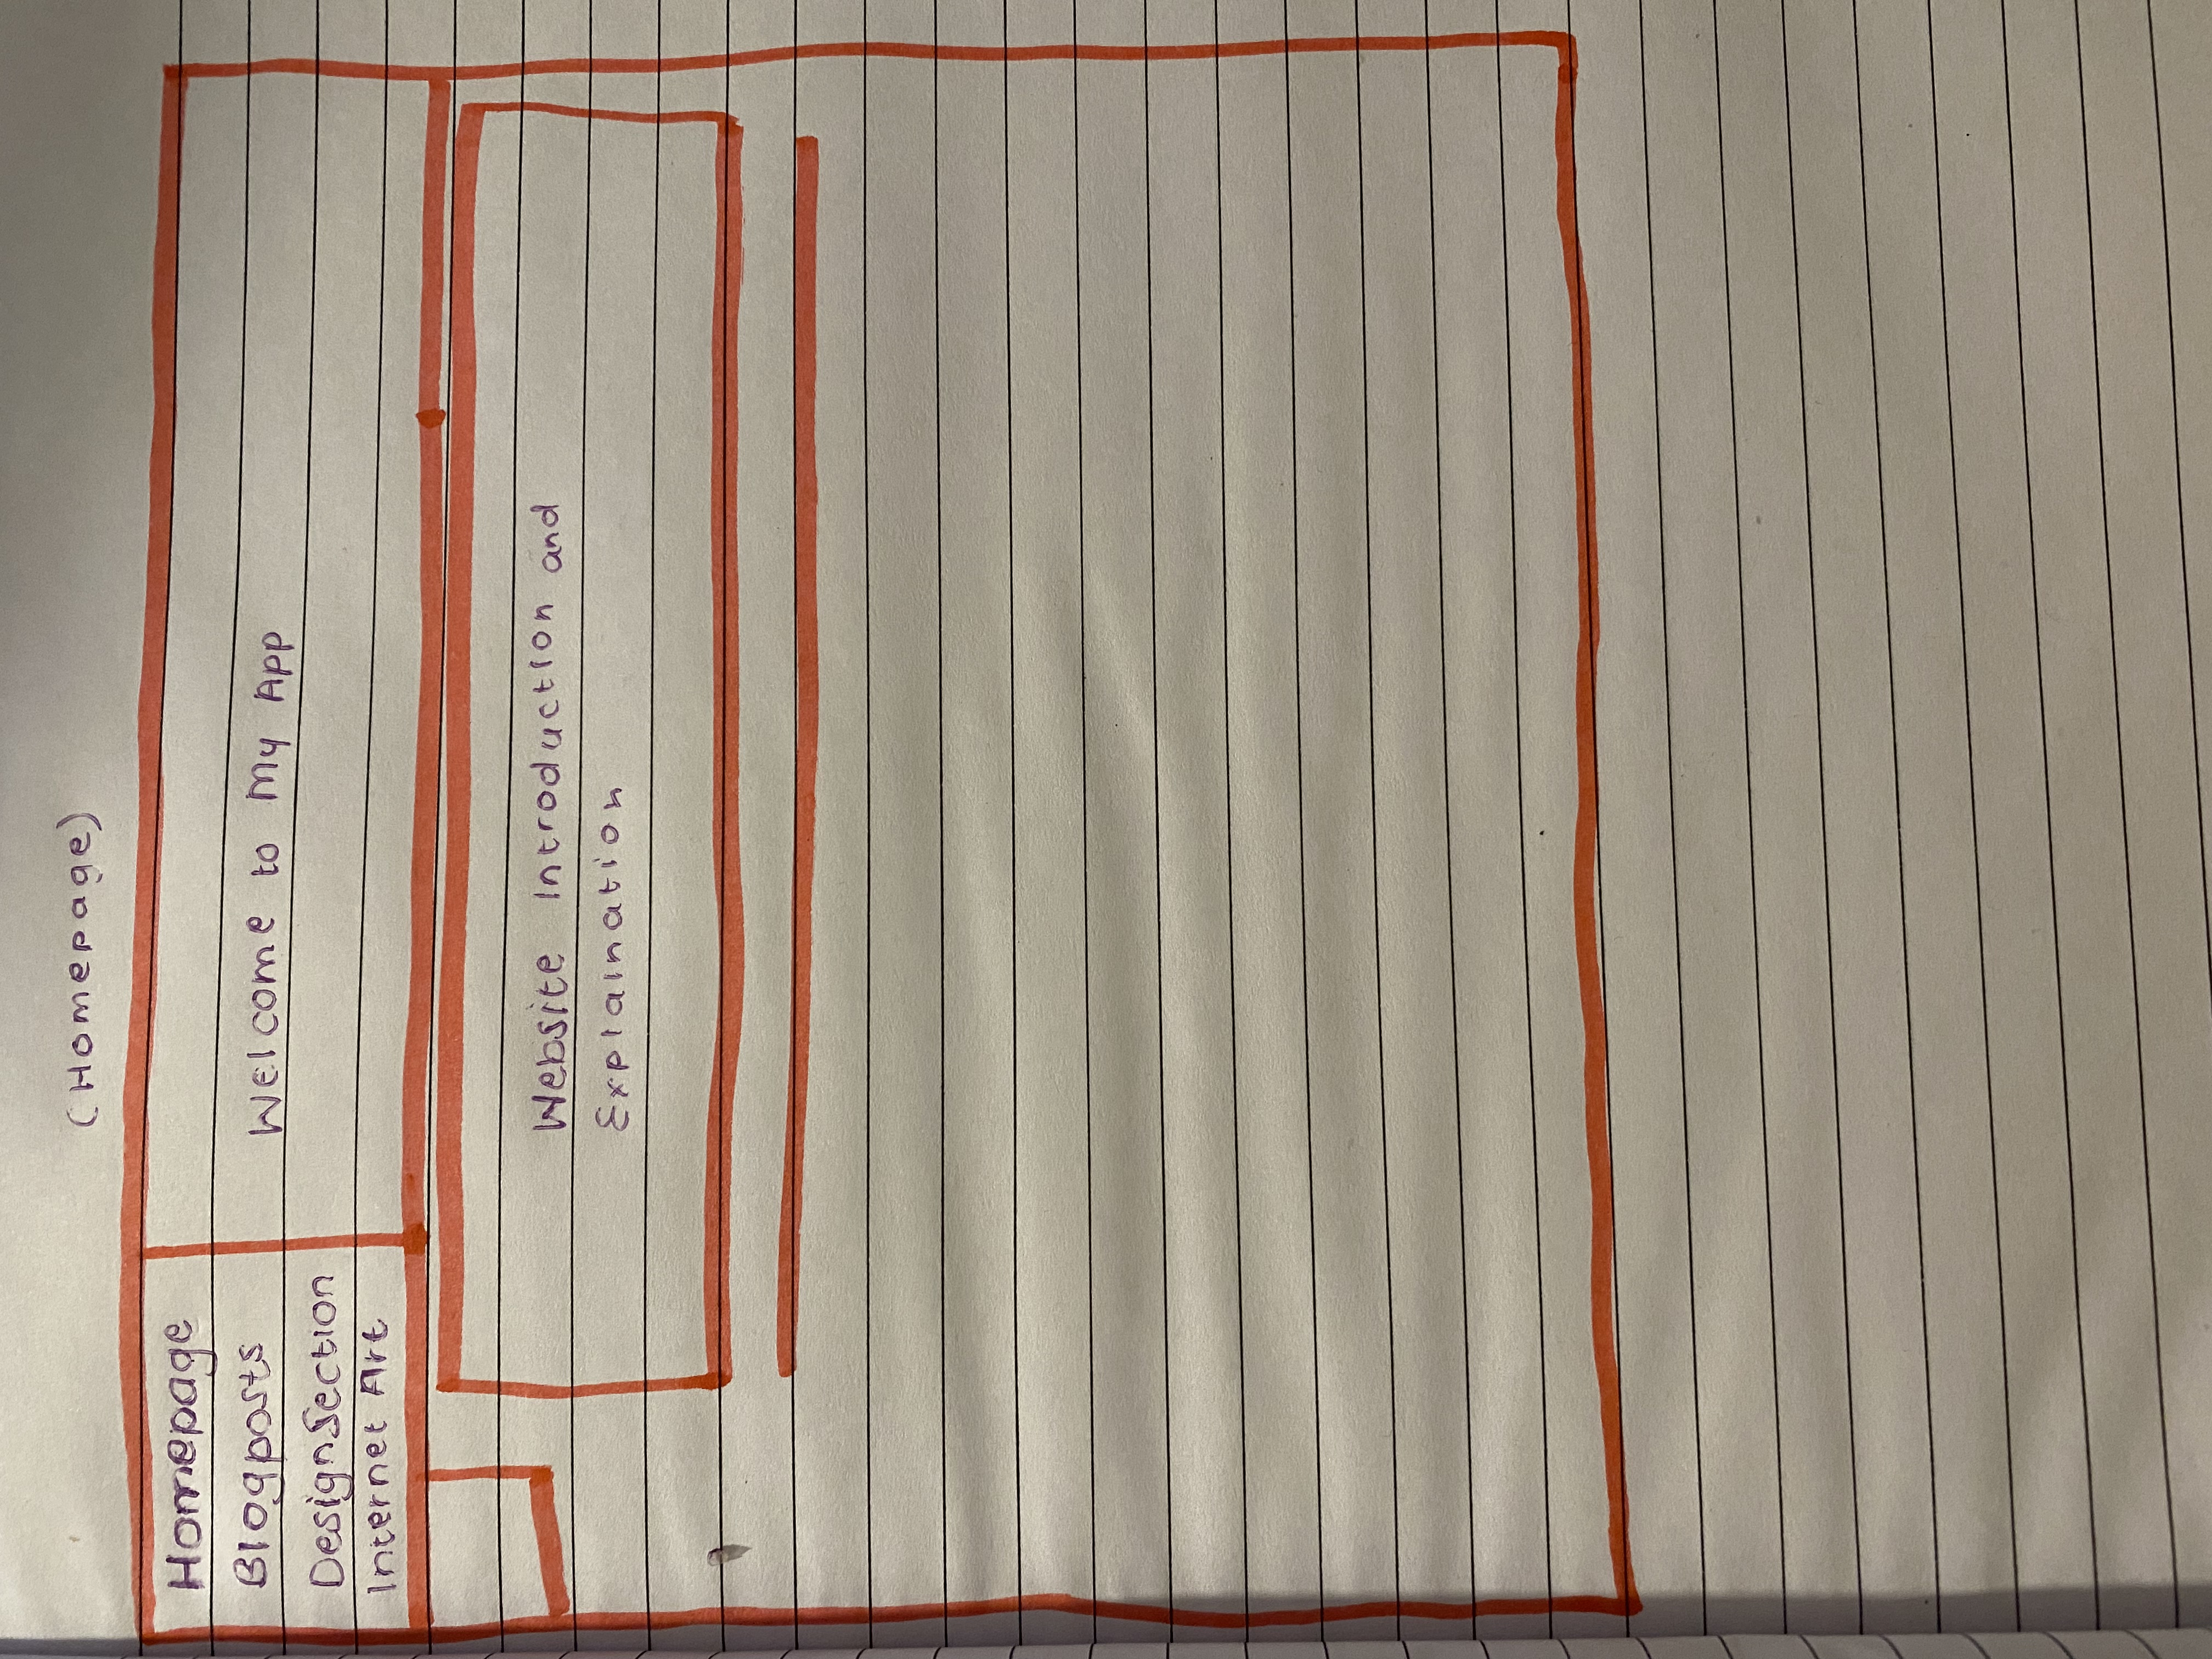 (Homepage)
Homepage
Blogposts
DesignSection
Internet Art
Welcome to My App
Website Introduction and
Explaination